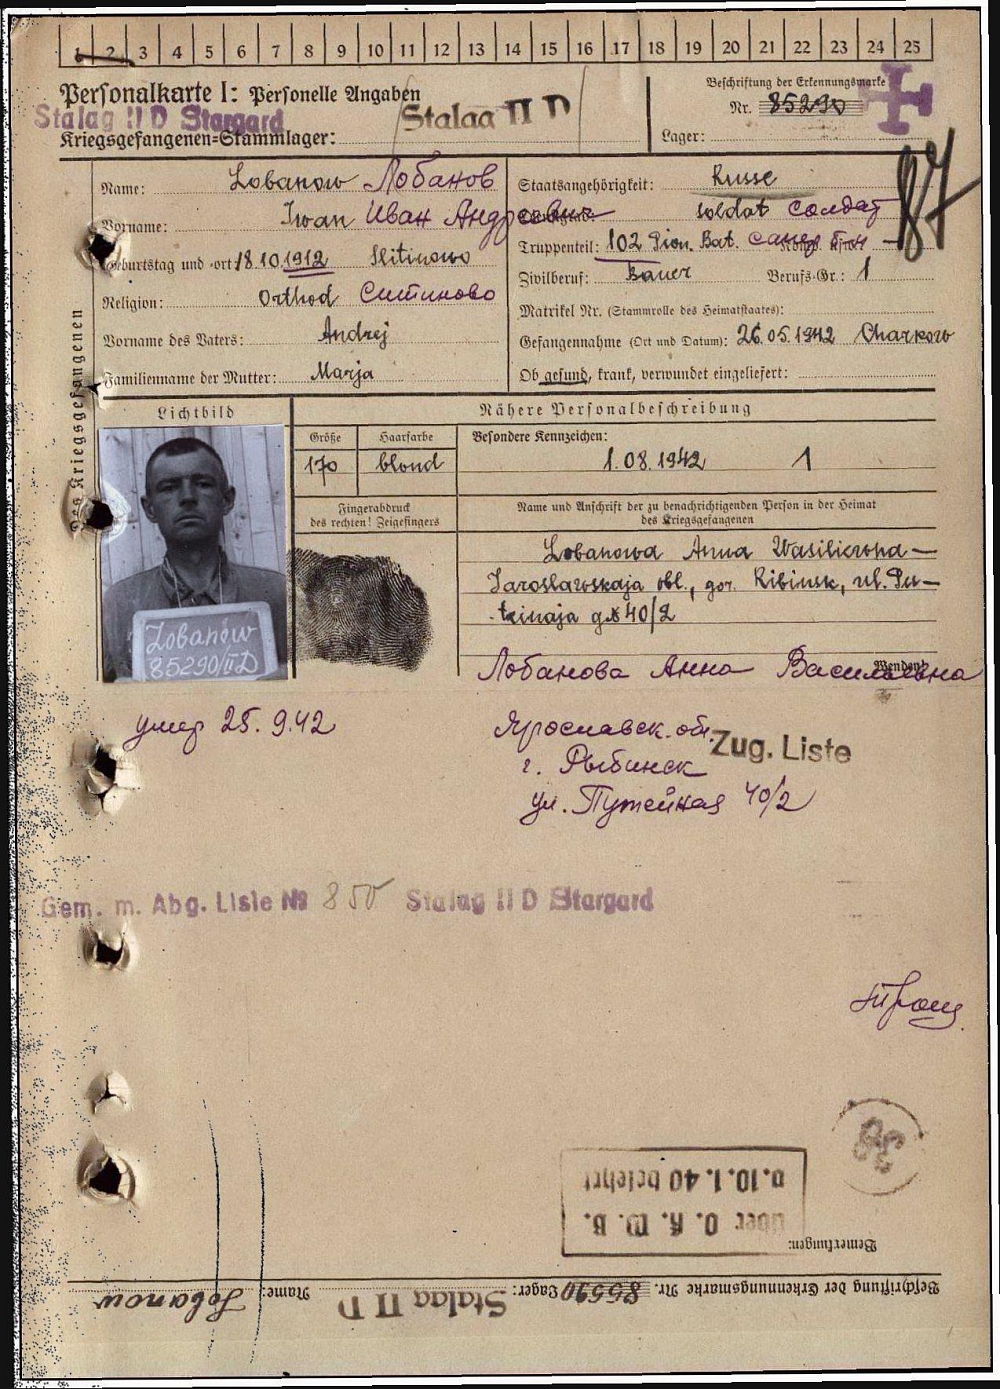 1 2 3 4 5 6 7 8 9 10 11 12 13 14 15 16 17 18 19 20 21 22 23 24 25
Personalkarte I: Personelle Angaben
Stalag II D Stargard
Kriegsgefangenen=Stammlager: Stalag II D
Beschriftung der Erkennungsmarke
Nr. 85290
Lager:
87
des Kriegsgefangenen
Name: Lobanow Лобанов
Vorname: Iwan Иван Андреевич
Geburtstag und -ort: 18.10.1912 Sitinowo
Religion: Orthod Ситиново
Vorname des Vaters: Andrej
Familienname der Mutter: Marja
Staatsangehörigkeit: Russe
soldat солдат
Truppenteil: 102 Pion. Bat. сапер
Zivilberuf: Bauer Berufs-Gr.: 1
Matrikel Nr. (Stammrolle des Heimatstaates):
Gefangennahme (Ort und Datum): 26.05.1942 Charkow
Ob gesund, krank, verwundet eingeliefert:
Lichtbild
Lobanow
85290/II D
Nähere Personalbeschreibung
Größe Haarfarbe Besondere Kennzeichen:
170 blond 1.08.1942 1
Fingerabdruck
des rechten! Zeigefingers
Name und Anschrift der zu benachrichtigenden Person in der Heimat
des Kriegsgefangenen
Lobanowa Anna Wasiliewna –
Jaroslawskaja obl., gor. Ribinsk, ul. Pu–
40/2
Wenden!
Лобанова Анна Васильевна
умер 25.9.42
Ярославск. об.
г. Рыбинск
ул. Путейная 40/2
Zug. Liste
Gem. m. Abg. Liste № 850 Stalag II D Stargard
Bemerkungen:
über O. K. W. B.
v. 10. 1. 40 belehrt
Beschriftung der Erkennungsmarke Nr. 85590 Lager: Stalag II D Name: Lobanow